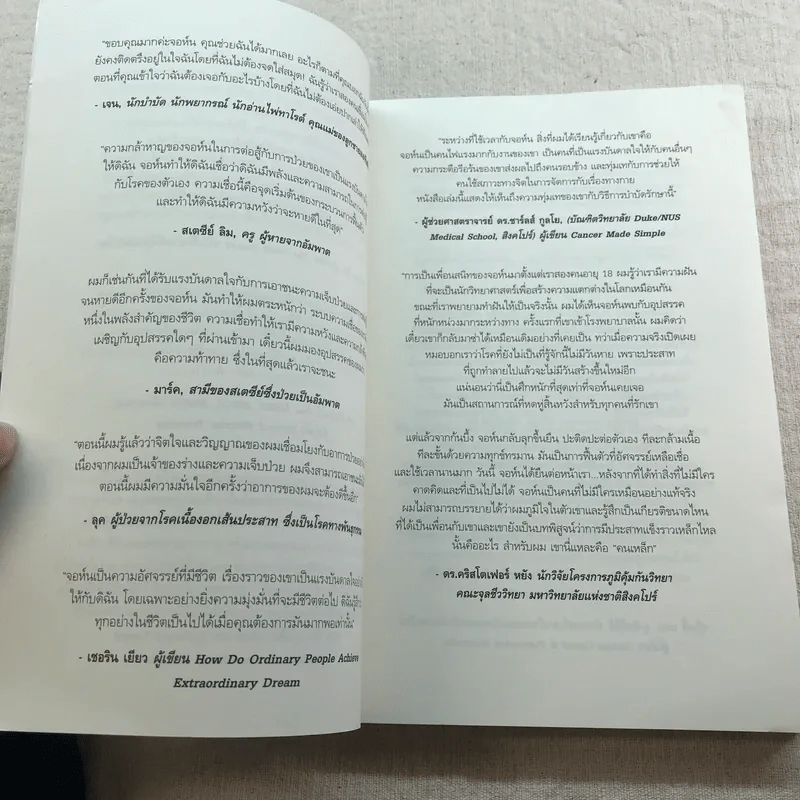 "ขอบคุณมากค่ะจอห์น คุณช่วยฉันได้มากเลย อะไรก็ตามที่คุณ
ยังคงติดตรึงอยู่ในใจฉันโดยที่ฉันไม่ต้องจดใส่สมุด! ฉันรู้ว่าเราสอง
ตอนที่คุณเข้าใจว่าฉันต้องเจอกับอะไรบ้างโดยที่ฉันไม่ต้องเอ่ยปาก
- เจน, นักบำบัด นักพยากรณ์ นักอ่านไพ่ทาโรต์ คุณแม่ของลูกชาย
"ความกล้าหาญของจอห์นในการต่อสู้กับการป่วยของเขาเป็นแรง
ให้ดิฉัน จอห์นทำให้ดิฉันเชื่อว่าดิฉันมีพลังและความสามารถในการ
กับโรคของตัวเอง ความเชื่อนี้คือจุดเริ่มต้นของกระบวนการฟื้น
และทำให้ดิฉันมีความหวังว่าจะหายดีในที่สุด"
- สเตซีย์ ลิม, ครู ผู้หายจากอัมพาต
ผมก็เช่นกันที่ได้รับแรงบันดาลใจกับการเอาชนะความเจ็บป่วยและ
จนหายดีอีกครั้งของจอห์น มันทำให้ผมตระหนักว่า ระบบความเชื่อของ
หนึ่งในพลังสำคัญของชีวิต ความเชื่อทำให้เรามีความหวังและความ
เผชิญกับอุปสรรคใดๆ ที่ผ่านเข้ามา เดี๋ยวนี้ผมมองอุปสรรคของผม
คือความท้าทาย ซึ่งในที่สุดแล้วเราจะชนะ
- มาร์ค, สามีของสเตซีย์ซึ่งป่วยเป็นอัมพาต
"ตอนนี้ผมรู้แล้วว่าจิตใจและวิญญาณของผมเชื่อมโยงกับอาการป่วย
เนื่องจากผมเป็นเจ้าของร่างและความเจ็บป่วย ผมจึงสามารถเอาชนะ
ตอนนี้ผมมีความมั่นใจอีกครั้งว่าอาการของผมจะต้องดีขึ้นอีก"
- ลุค ผู้ป่วยจากโรคเนื้องอกเส้นประสาท ซึ่งเป็นโรคทางพันธุกรรม
"จอห์นเป็นความอัศจรรย์ที่มีชีวิต เรื่องราวของเขาเป็นแรงบันดาลใจ
ให้กับดิฉัน โดยเฉพาะอย่างยิ่งความมุ่งมั่นที่จะมีชีวิตต่อไป ดิฉันรู้
ทุกอย่างในชีวิตเป็นไปได้เมื่อคุณต้องการมันมากพอเท่านั้น"
- เชอริน เยียว ผู้เขียน How Do Ordinary People Achieve
Extraordinary Dream
"ระหว่างที่ใช้เวลากับจอห์น สิ่งที่ผมได้เรียนรู้เกี่ยวกับเขาคือ
จอห์นเป็นคนไฟแรงมากกับงานของเขา เป็นคนที่เป็นแรงบันดาลใจให้กับคนอื่นๆ
ความกระตือรือร้นของเขาส่งผลไปถึงคนรอบข้าง และทุ่มเทกับการช่วยให้
คนใช้สภาวะทางจิตในการจัดการกับเรื่องทางกาย
หนังสือเล่มนี้แสดงให้เห็นถึงความทุ่มเทของเขากับวิธีการบำบัดรักษานี้"
- ผู้ช่วยศาสตราจารย์ ดร.ชาร์ลส์ กูลโย, (บัณฑิตวิทยาลัย Duke/NUS
Medical School, สิงคโปร์) ผู้เขียน Cancer Made Simple
"การเป็นเพื่อนสนิทของจอห์นมาตั้งแต่เราสองคนอายุ 18 ผมรู้ว่าเรามีความฝัน
ที่จะเป็นนักวิทยาศาสตร์เพื่อสร้างความแตกต่างในโลกเหมือนกัน
ขณะที่เราพยายามทำฝันให้เป็นจริงนั้น ผมได้เห็นจอห์นพบกับอุปสรรค
ที่หนักหน่วงมากระหว่างทาง ครั้งแรกที่เขาเข้าโรงพยาบาลนั้น ผมคิดว่า
เดี๋ยวเขาก็กลับมาซ่าได้เหมือนเดิมอย่างที่เคยเป็น ทว่าเมื่อความจริงเปิดเผย
หมอบอกเราว่าโรคที่ยังไม่เป็นที่รู้จักนี้ไม่มีวันหาย เพราะประสาท
ที่ถูกทำลายไปแล้วจะไม่มีวันสร้างขึ้นใหม่อีก
แน่นอนว่านี่เป็นศึกหนักที่สุดเท่าที่จอห์นเคยเจอ
มันเป็นสถานการณ์ที่หดหู่สิ้นหวังสำหรับทุกคนที่รักเขา
แต่แล้วจากก้นบึ้ง จอห์นกลับลุกขึ้นยืน ปะติดปะต่อตัวเอง ทีละกล้ามเนื้อ
ทีละชั้นด้วยความทุกข์ทรมาน มันเป็นการฟื้นตัวที่อัศจรรย์เหลือเชื่อ
และใช้เวลานานมาก วันนี้ จอห์นได้ยืนต่อหน้าเรา...หลังจากที่ได้ทำสิ่งที่ไม่มีใคร
คาดคิดและที่เป็นไปไม่ได้ จอห์นเป็นคนที่ไม่มีใครเหมือนอย่างแท้จริง
ผมไม่สามารถบรรยายได้ว่าผมภูมิใจในตัวเขาและรู้สึกเป็นเกียรติขนาดไหน
ที่ได้เป็นเพื่อนกับเขาและเขายังเป็นบทพิสูจน์ว่าการมีประสาทแข็งราวเหล็กไหล
นั้นคืออะไร สำหรับผม เขานี่แหละคือ "คนเหล็ก"
- ดร.คริสโตเฟอร์ หยัง นักวิจัยโครงการภูมิคุ้มกันวิทยา
คณะจุลชีววิทยา มหาวิทยาลัยแห่งชาติสิงคโปร์